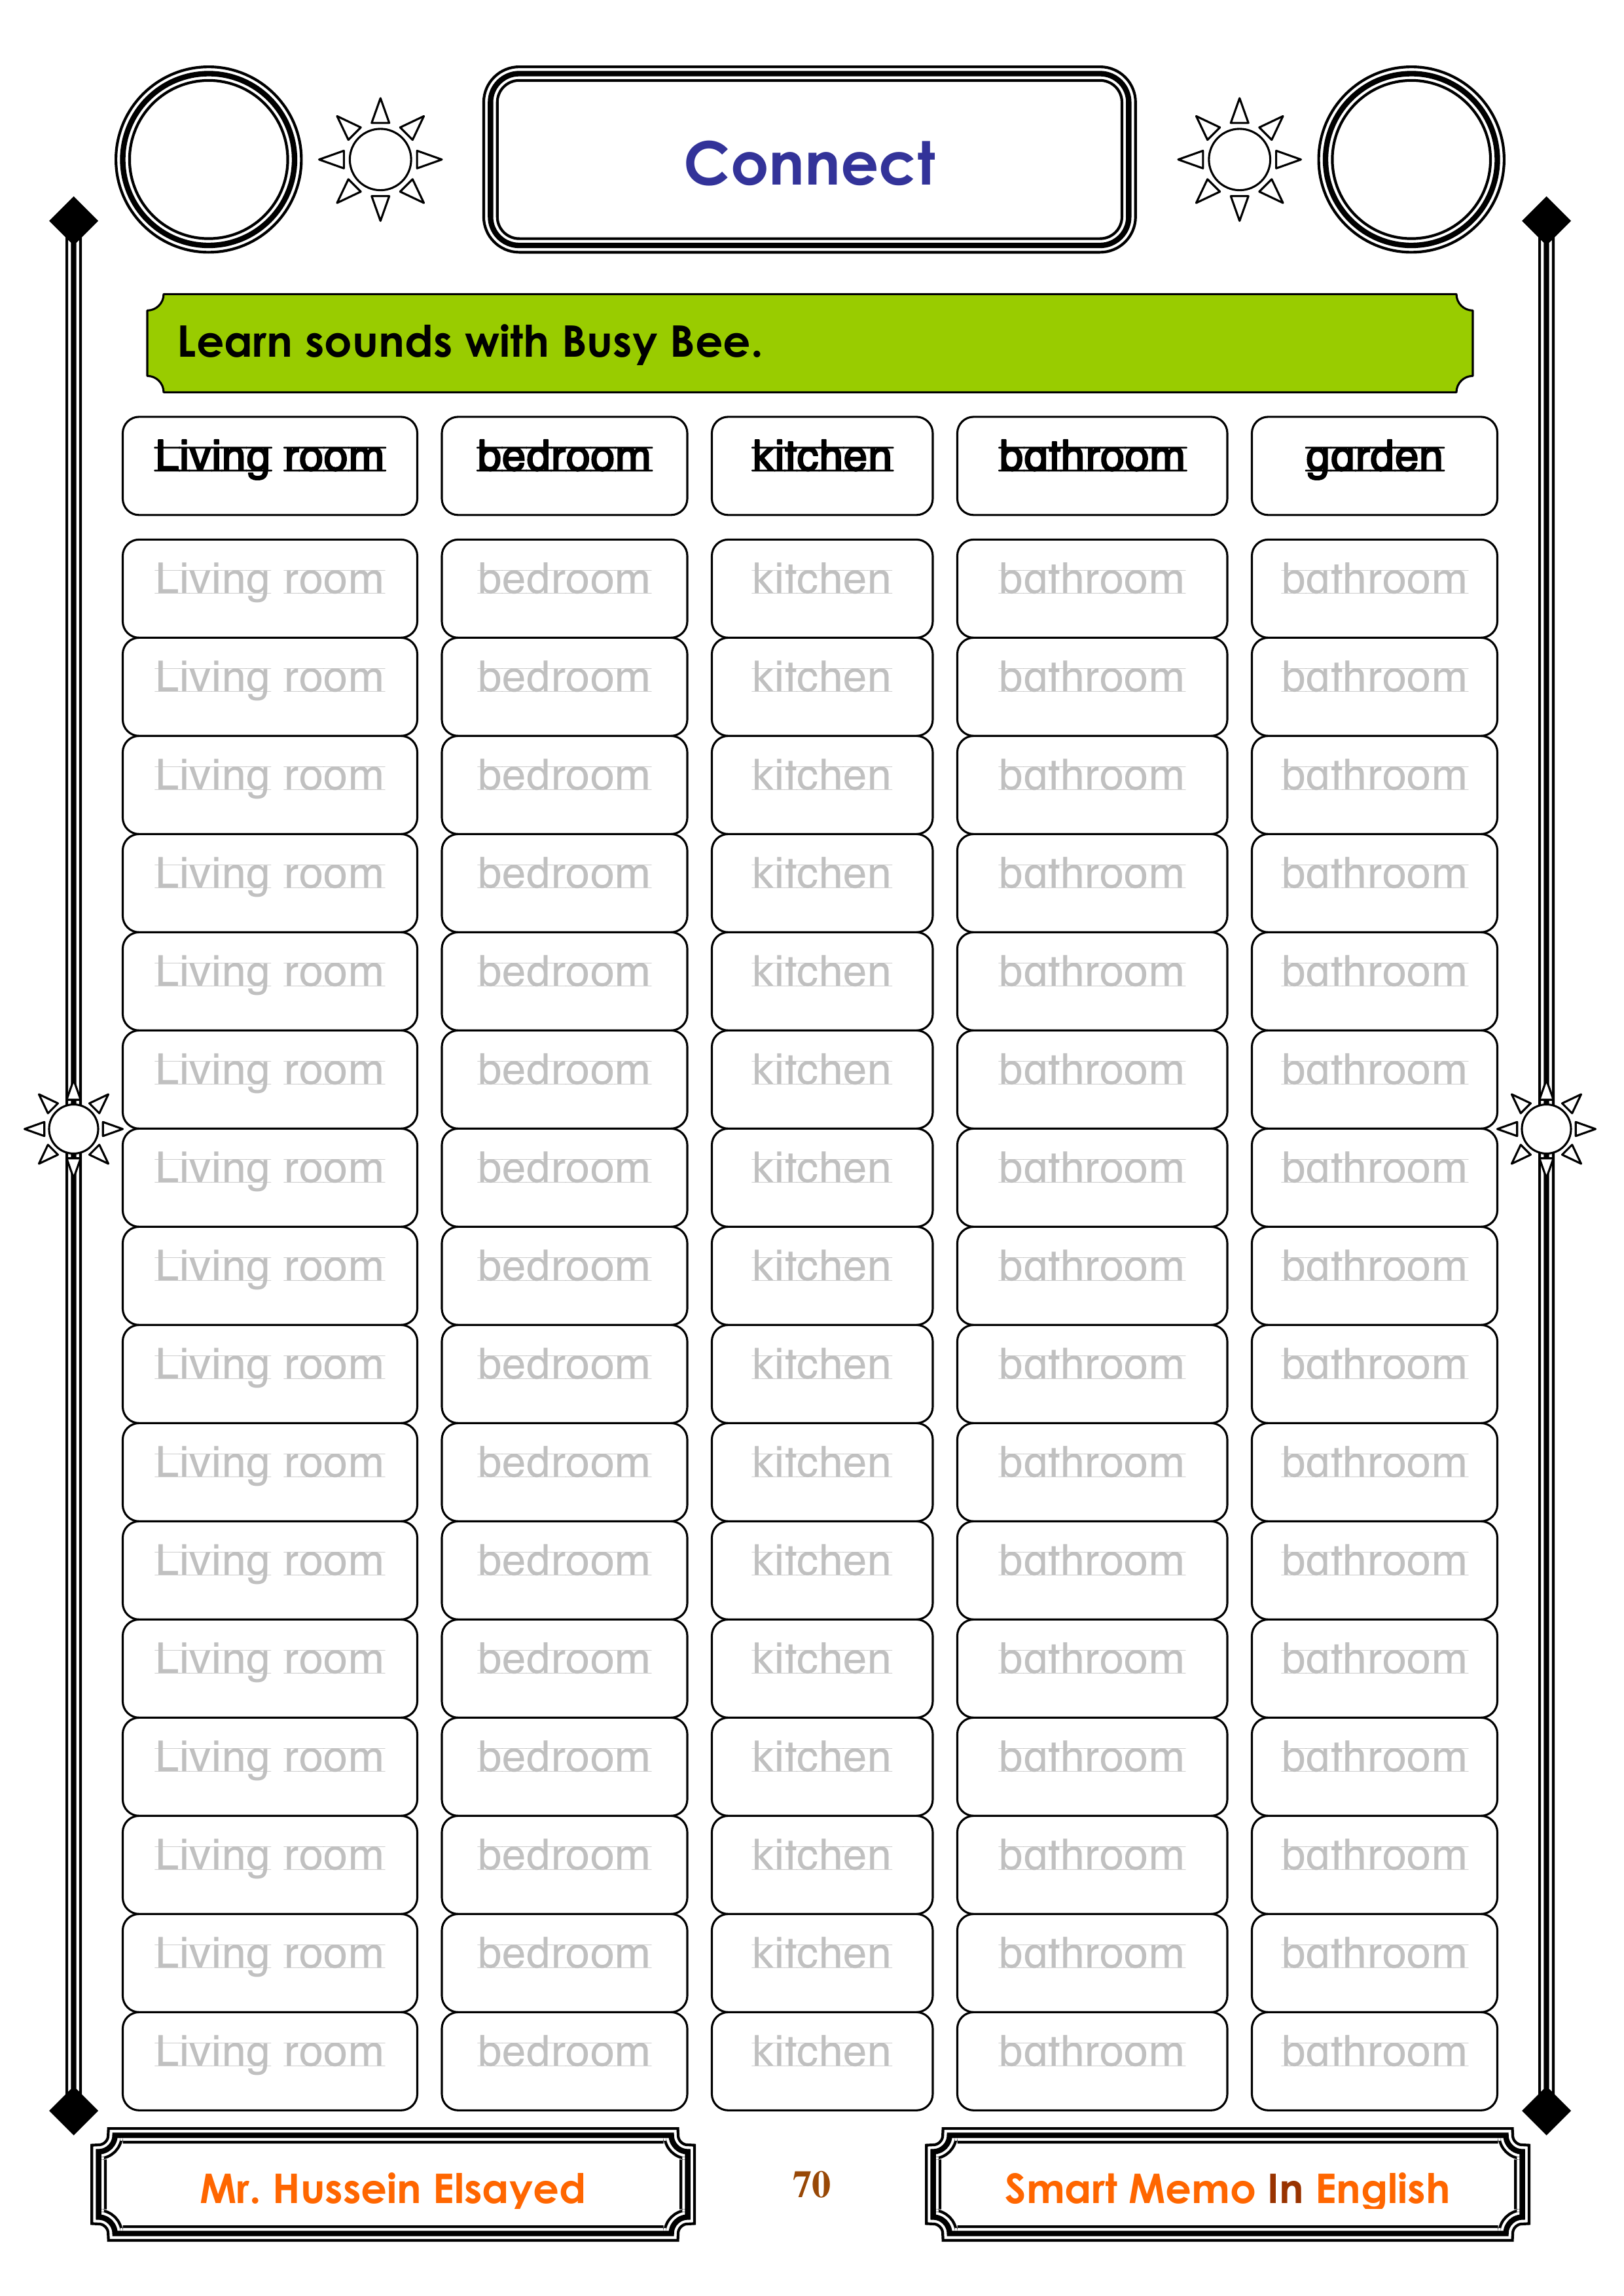 Connect
Learn sounds with Busy Bee.
Living room bedroom kitchen bathroom garden
Living room bedroom kitchen bathroom bathroom
Living room bedroom kitchen bathroom bathroom
Living room bedroom kitchen bathroom bathroom
Living room bedroom kitchen bathroom bathroom
Living room bedroom kitchen bathroom bathroom
Living room bedroom kitchen bathroom bathroom
Living room bedroom kitchen bathroom bathroom
Living room bedroom kitchen bathroom bathroom
Living room bedroom kitchen bathroom bathroom
Living room bedroom kitchen bathroom bathroom
Living room bedroom kitchen bathroom bathroom
Living room bedroom kitchen bathroom bathroom
Living room bedroom kitchen bathroom bathroom
Living room bedroom kitchen bathroom bathroom
Living room bedroom kitchen bathroom bathroom
Living room bedroom kitchen bathroom bathroom
Mr. Hussein Elsayed 70 Smart Memo In English